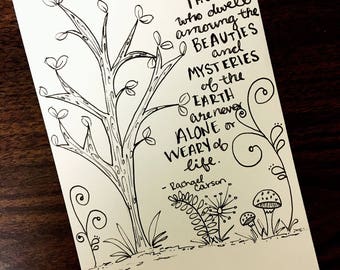 who dwell
amoung the
BEAUTIES
and
MYSTERIES
of the
EARTH
are never
ALONE or
WEARY of
life.
- Rachael
Carson